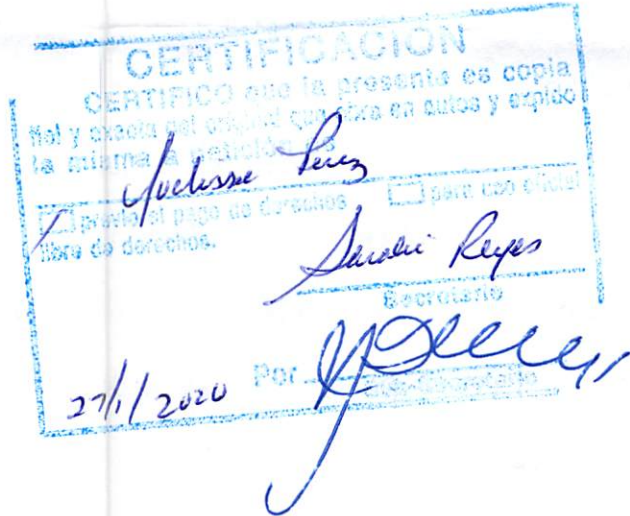 CERTIFICACION
CERTIFICO que la presente es copia
fiel y exacta del original que obra en autos y expido
la misma a petición de
Perez
previo el pago de derechos para uso oficial
libre de derechos.
Reyes
Secretario
27/1/2020 Por
Secretario